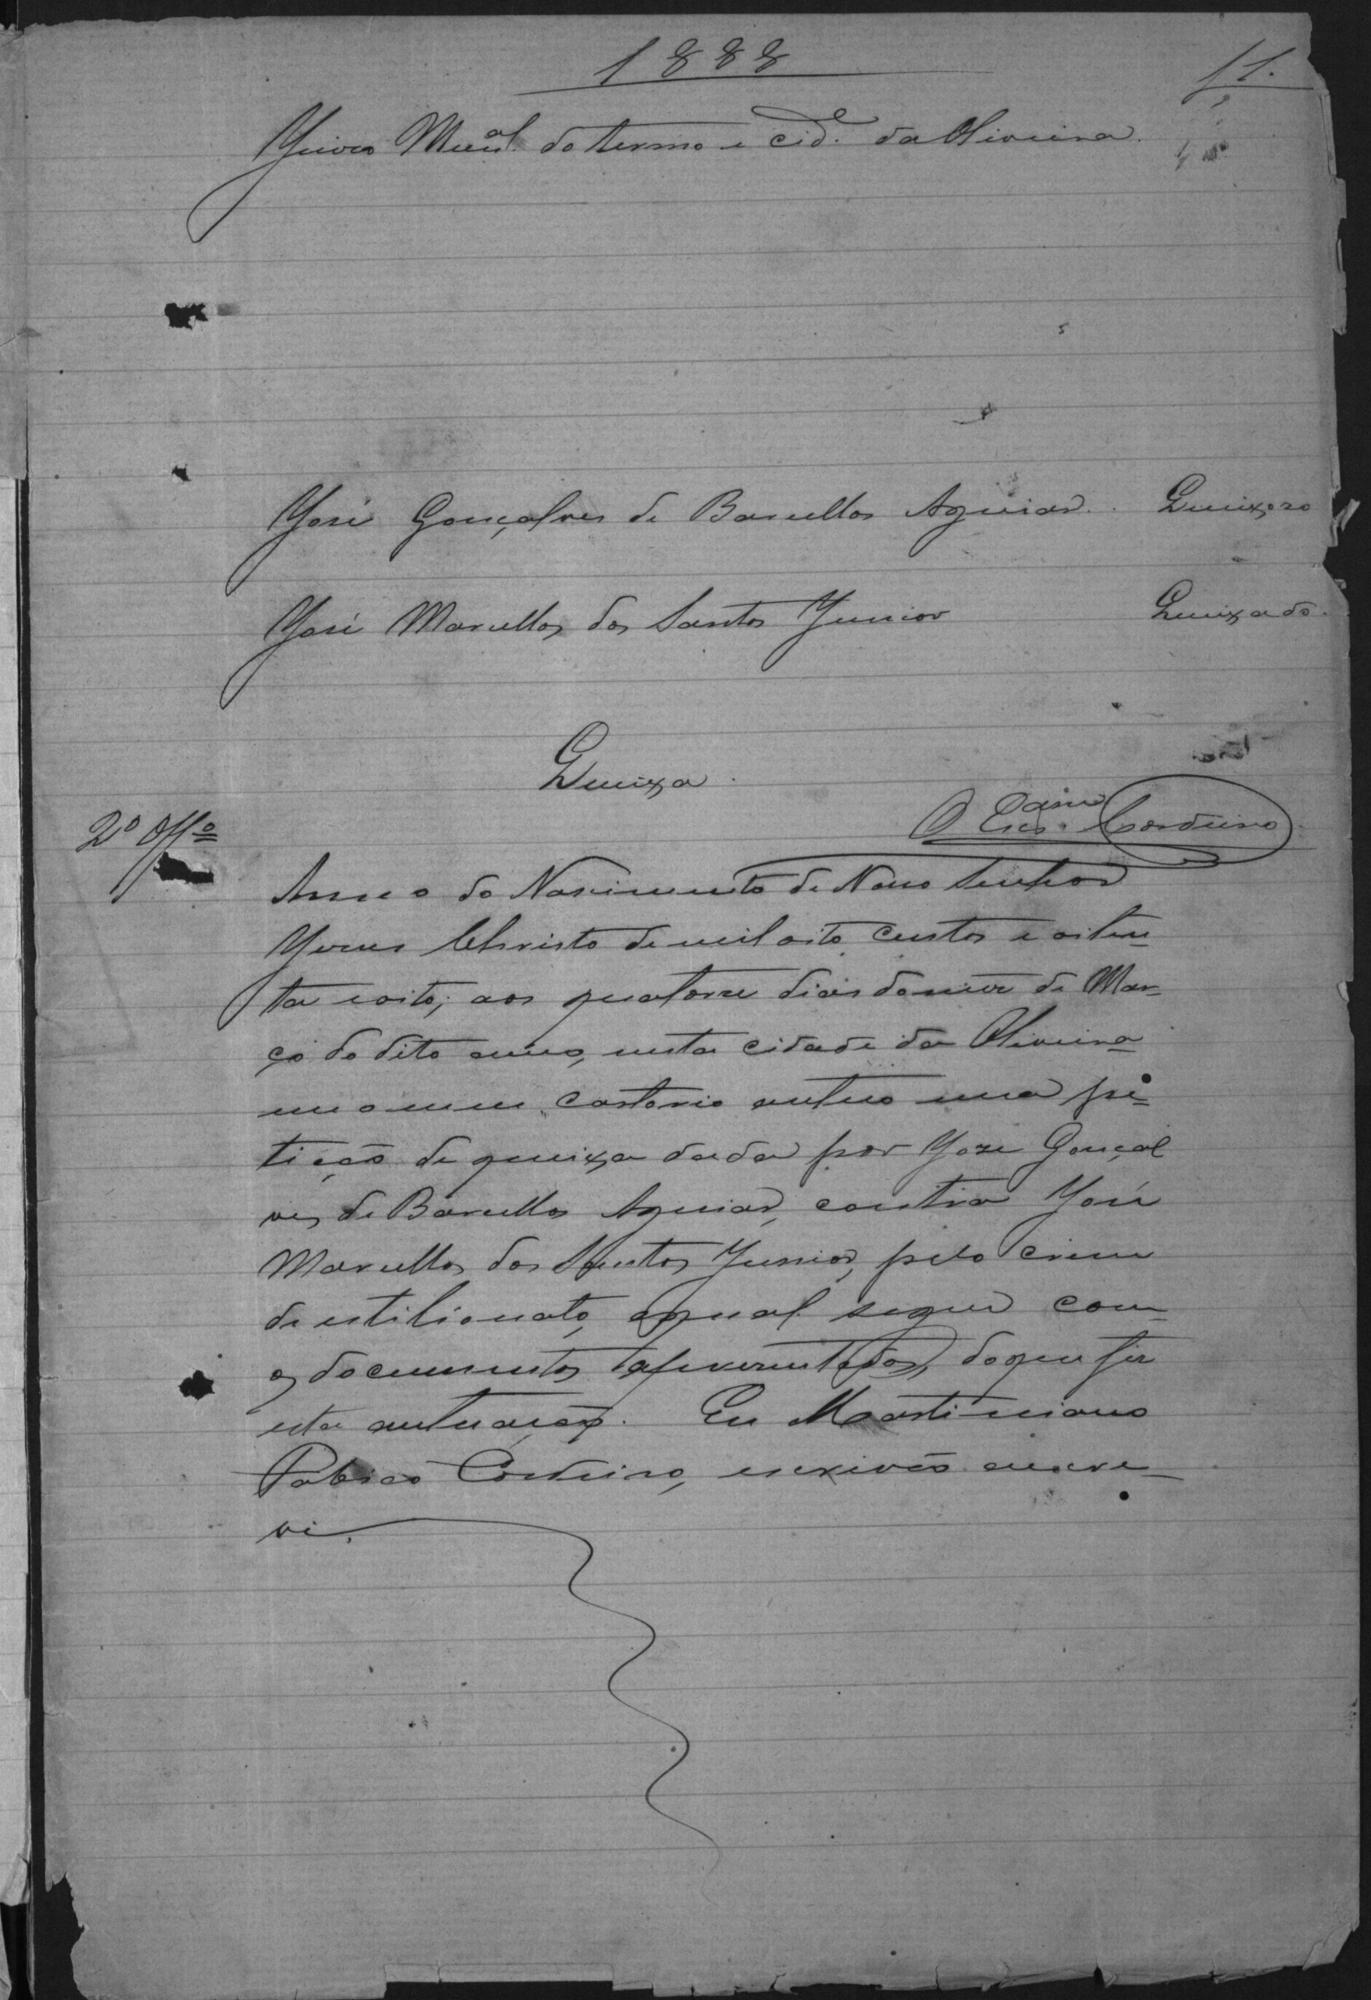 1888
f 1.
Juizo Mun.al do termo e cid.e da Oliveira.
José Gonçalves de Barcellos Aguiar. Queixoso
José Marcellos dos Santos Junior Queixado.
Queixa.
2º Offº
O Esc.am Cordeiro
Anno do Nascimento de Nosso Senhor
Jesus Christo de mil oito centos e oiten-
ta e oito; aos quatorze dias do mez de Mar-
ço do dito anno, nesta cidade da Oliveira
em o meu cartorio autuo uma pe-
tição de queixa dada por Jose Gonçal
ves de Barcellos Aguiar, contra José
Marcellos dos Santos Junior, pelo crime
de estilionato, a qual segue com
os documentos do que fiz
esta autuação. Eu Martiniano
Cordeiro, escrivão escre-
vi.